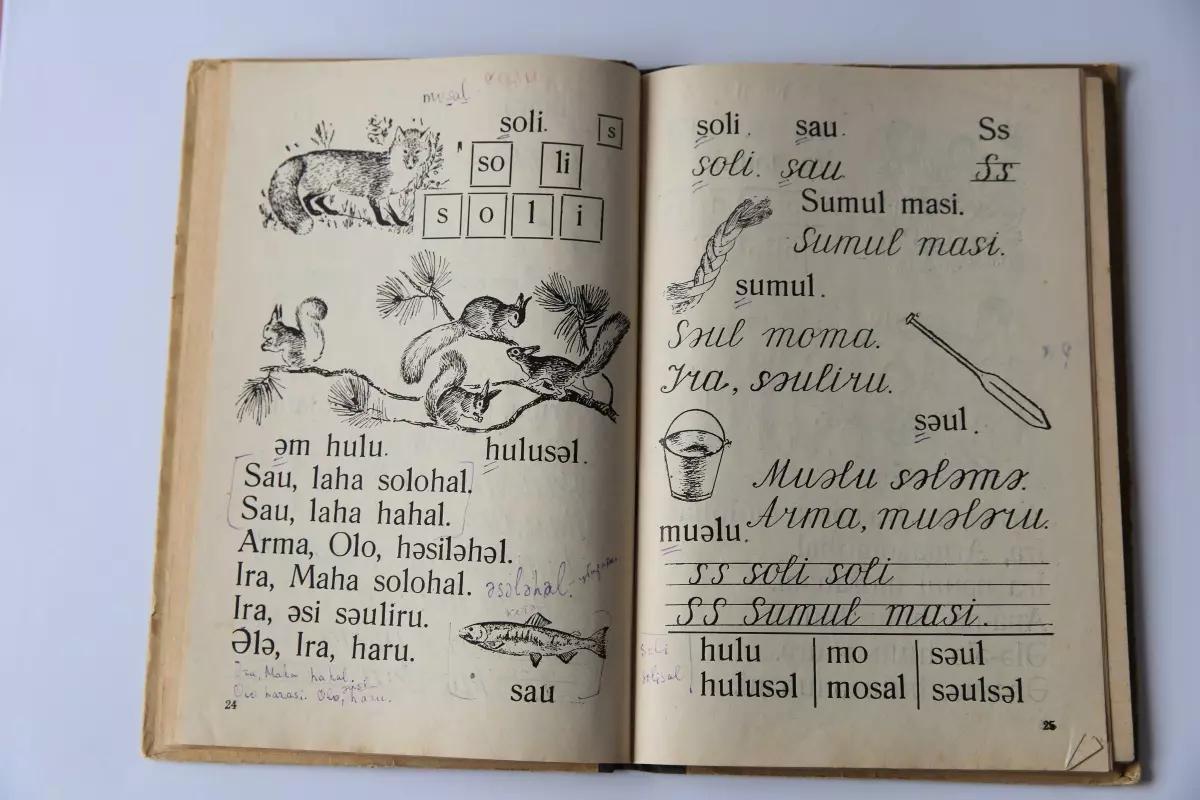 soli.
s
so li
s o l i
əm hulu. hulusəl.
Sau, laha solohal.
Sau, laha hahal.
Arma, Olo, həsiləhəl.
Ira, Maha solohal. əsələhəl.
Ira, əsi səuliru.
Ələ, Ira, haru.
sau
Ira, Maha hahal.
24
soli. sau. Ss
soli. sau. Ss
Sumul masi.
Sumul masi.
sumul.
Səul moma.
Ira, səuliru.
səul.
Muəlu sələmə.
Arma, muələru.
muəlu.
ss soli soli
SS Sumul masi.
hulu mo səul
hulusəl mosal səulsəl
soli
solisal
25